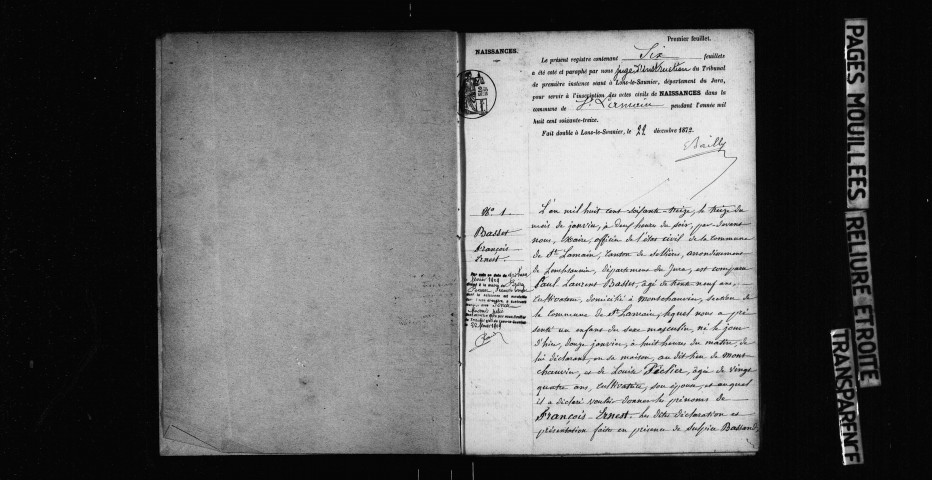 Premier feuillet.
NAISSANCES.
Le présent registre contenant Six feuillets
a été coté et paraphé par nous juge d'instruction du Tribunal
de première instance séant à Lons-le-Saunier, département du Jura,
pour servir à l'inscription des actes civils de NAISSANCES dans la
commune de St Lamain pendant l'année mil
huit cent soixante-treize.
Fait double à Lons-le-Saunier, le 22 décembre 1872.
Bailly
No 1.
Basset
François
Ernest.
L'an mil huit cent soixante treize, le treize du
mois de janvier, à deux heures du soir, par devant
nous, Maire, officier de l'état civil de la commune
de St Lamain, canton de Sellières, arrondissement
de Lons-le-Saunier, département du Jura, est comparu
Paul Laurent Basset, âgé de trente neuf ans,
cultivateur, domicilié à montchauvin, section de
la commune de St Lamain, lequel nous a pré
senté un enfant du sexe masculin, né le jour
d'hier, douze janvier, à huit heures du matin, de
lui déclarant, en sa maison, au dit lieu de mont-
chauvin, et de Louise Péclier, âgée de vingt
quatre ans, cultivatrice, son épouse, et auquel
il a déclaré vouloir donner les prénoms de
François-Ernest. Les dites déclaration et
présentation faite en présence de Sulpice Bassard,
PAGES MOUILLEES RELIURE ETROITE
TRANSPARENCE